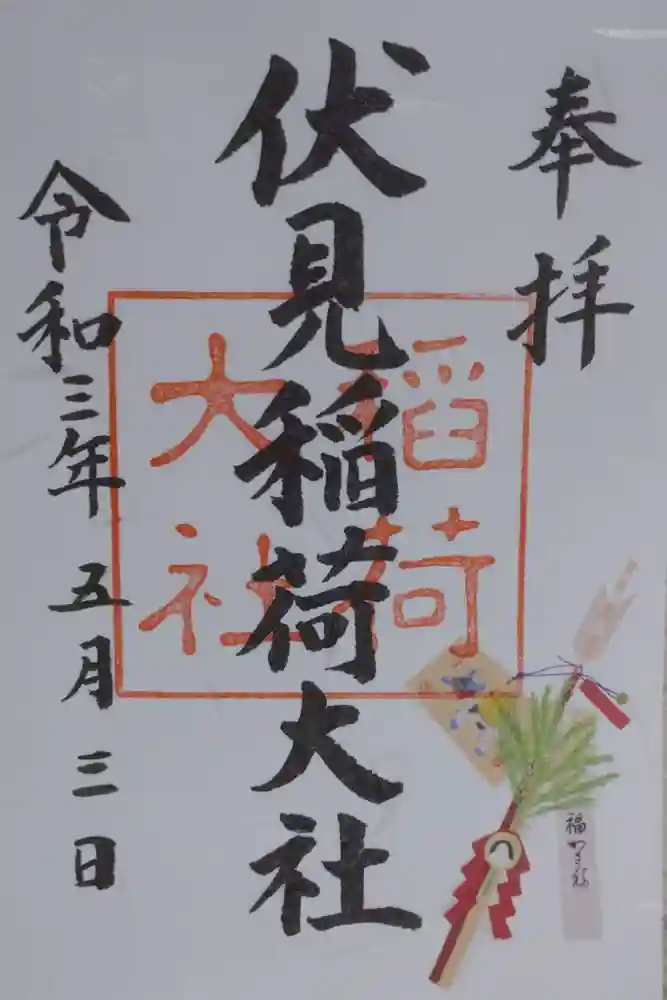 奉拝
伏見稲荷大社
稲荷
大社
令和三年五月三日
福かさね